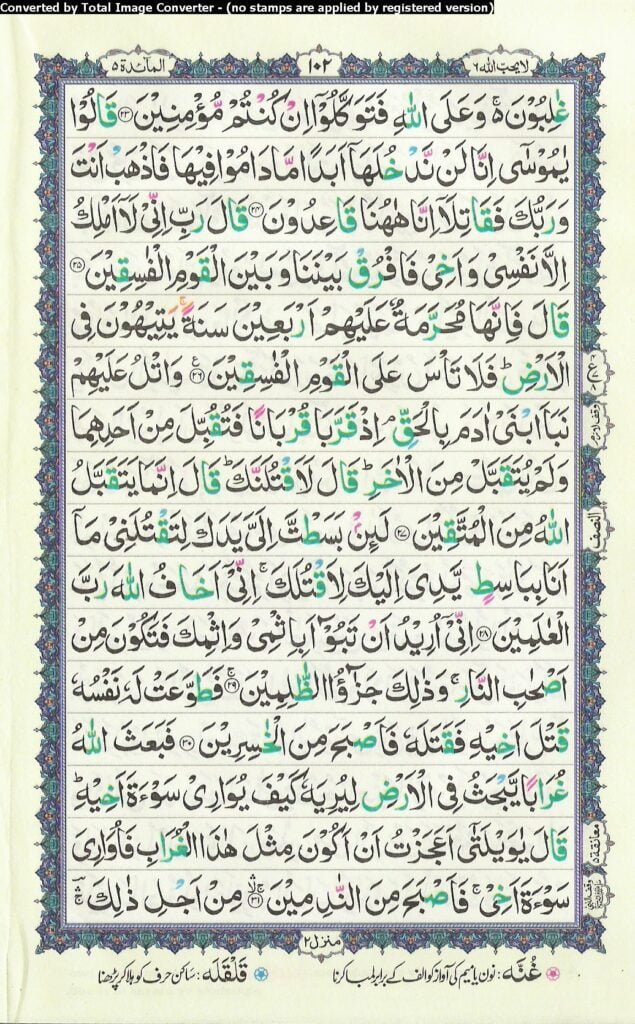 Converted by Total Image Converter - (no stamps are applied by registered version)
لا يحب الله ٦
١٠٢
المائدة ٥
غٰلِبُوْنَ ۚ۬ وَعَلَى اللّٰهِ فَتَوَكَّلُوْۤا اِنْ كُنْتُمْ مُّؤْمِنِيْنَ ﴿۲۳﴾ قَالُوْا
يٰمُوْسٰۤى اِنَّا لَنْ نَّدْخُلَهَاۤ اَبَدًا مَّا دَامُوْا فِيْهَا فَاذْهَبْ اَنْتَ
وَرَبُّكَ فَقَاتِلَاۤ اِنَّا هٰهُنَا قَاعِدُوْنَ ﴿۲۴﴾ قَالَ رَبِّ اِنِّيْ لَاۤ اَمْلِكُ
اِلَّا نَفْسِيْ وَاَخِيْ فَافْرُقْ بَيْنَنَا وَبَيْنَ الْقَوْمِ الْفٰسِقِيْنَ ﴿۲۵﴾
قَالَ فَاِنَّهَا مُحَرَّمَةٌ عَلَيْهِمْ اَرْبَعِيْنَ سَنَةً ۚ يَتِيْهُوْنَ فِي
الْاَرْضِ ؕ فَلَا تَاْسَ عَلَى الْقَوْمِ الْفٰسِقِيْنَ ﴿۲۶﴾ وَاتْلُ عَلَيْهِمْ
نَبَاَ ابْنَيْ اٰدَمَ بِالْحَقِّ ۘ اِذْ قَرَّبَا قُرْبَانًا فَتُقُبِّلَ مِنْ اَحَدِهِمَا
وَلَمْ يُتَقَبَّلْ مِنَ الْاٰخَرِ ؕ قَالَ لَاَقْتُلَنَّكَ ؕ قَالَ اِنَّمَا يَتَقَبَّلُ
اللّٰهُ مِنَ الْمُتَّقِيْنَ ﴿۲۷﴾ لَئِنْۢ بَسَطْتَّ اِلَيَّ يَدَكَ لِتَقْتُلَنِيْ مَاۤ
اَنَا بِبَاسِطٍ يَّدِيَ اِلَيْكَ لِاَقْتُلَكَ ۚ اِنِّيْۤ اَخَافُ اللّٰهَ رَبَّ
الْعٰلَمِيْنَ ﴿۲۸﴾ اِنِّيْۤ اُرِيْدُ اَنْ تَبُوْٓاَ بِاِثْمِيْ وَاِثْمِكَ فَتَكُوْنَ مِنْ
اَصْحٰبِ النَّارِ ۚ وَذٰلِكَ جَزٰٓؤُا الظّٰلِمِيْنَ ﴿۲۹﴾ فَطَوَّعَتْ لَهٗ نَفْسُهٗ
قَتْلَ اَخِيْهِ فَقَتَلَهٗ فَاَصْبَحَ مِنَ الْخٰسِرِيْنَ ﴿۳۰﴾ فَبَعَثَ اللّٰهُ
غُرَابًا يَّبْحَثُ فِي الْاَرْضِ لِيُرِيَهٗ كَيْفَ يُوَارِيْ سَوْءَةَ اَخِيْهِ ؕ
قَالَ يٰوَيْلَتٰۤى اَعَجَزْتُ اَنْ اَكُوْنَ مِثْلَ هٰذَا الْغُرَابِ فَاُوَارِيَ
سَوْءَةَ اَخِيْ ۚ فَاَصْبَحَ مِنَ النّٰدِمِيْنَ ﴿۳۱﴾ مِنْ اَجْلِ ذٰلِكَ
وقف لازم
النصف
معانقة ٥
منزل ٢
غُنّه: نون یا میم کی آواز کو الف کے برابر لمبا کرنا
قلقله: ساکن حرف کو ہلا کر پڑھنا